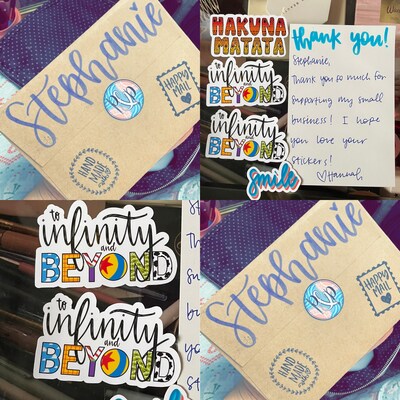 Stephanie
HAPPY
MAIL
HAND
MADE
HAKUNA
MATATA
to
infinity
and
BEYOND
to
infinity
and
BEYOND
smile
thank you!
Stephanie,
Thank you so much for
supporting my small
business! I hope
you love your
stickers!
♡Hannah
to
infinity
and
BEYOND
to
infinity
and
BEYOND
Stephanie
HAPPY
MAIL
HAND
MADE